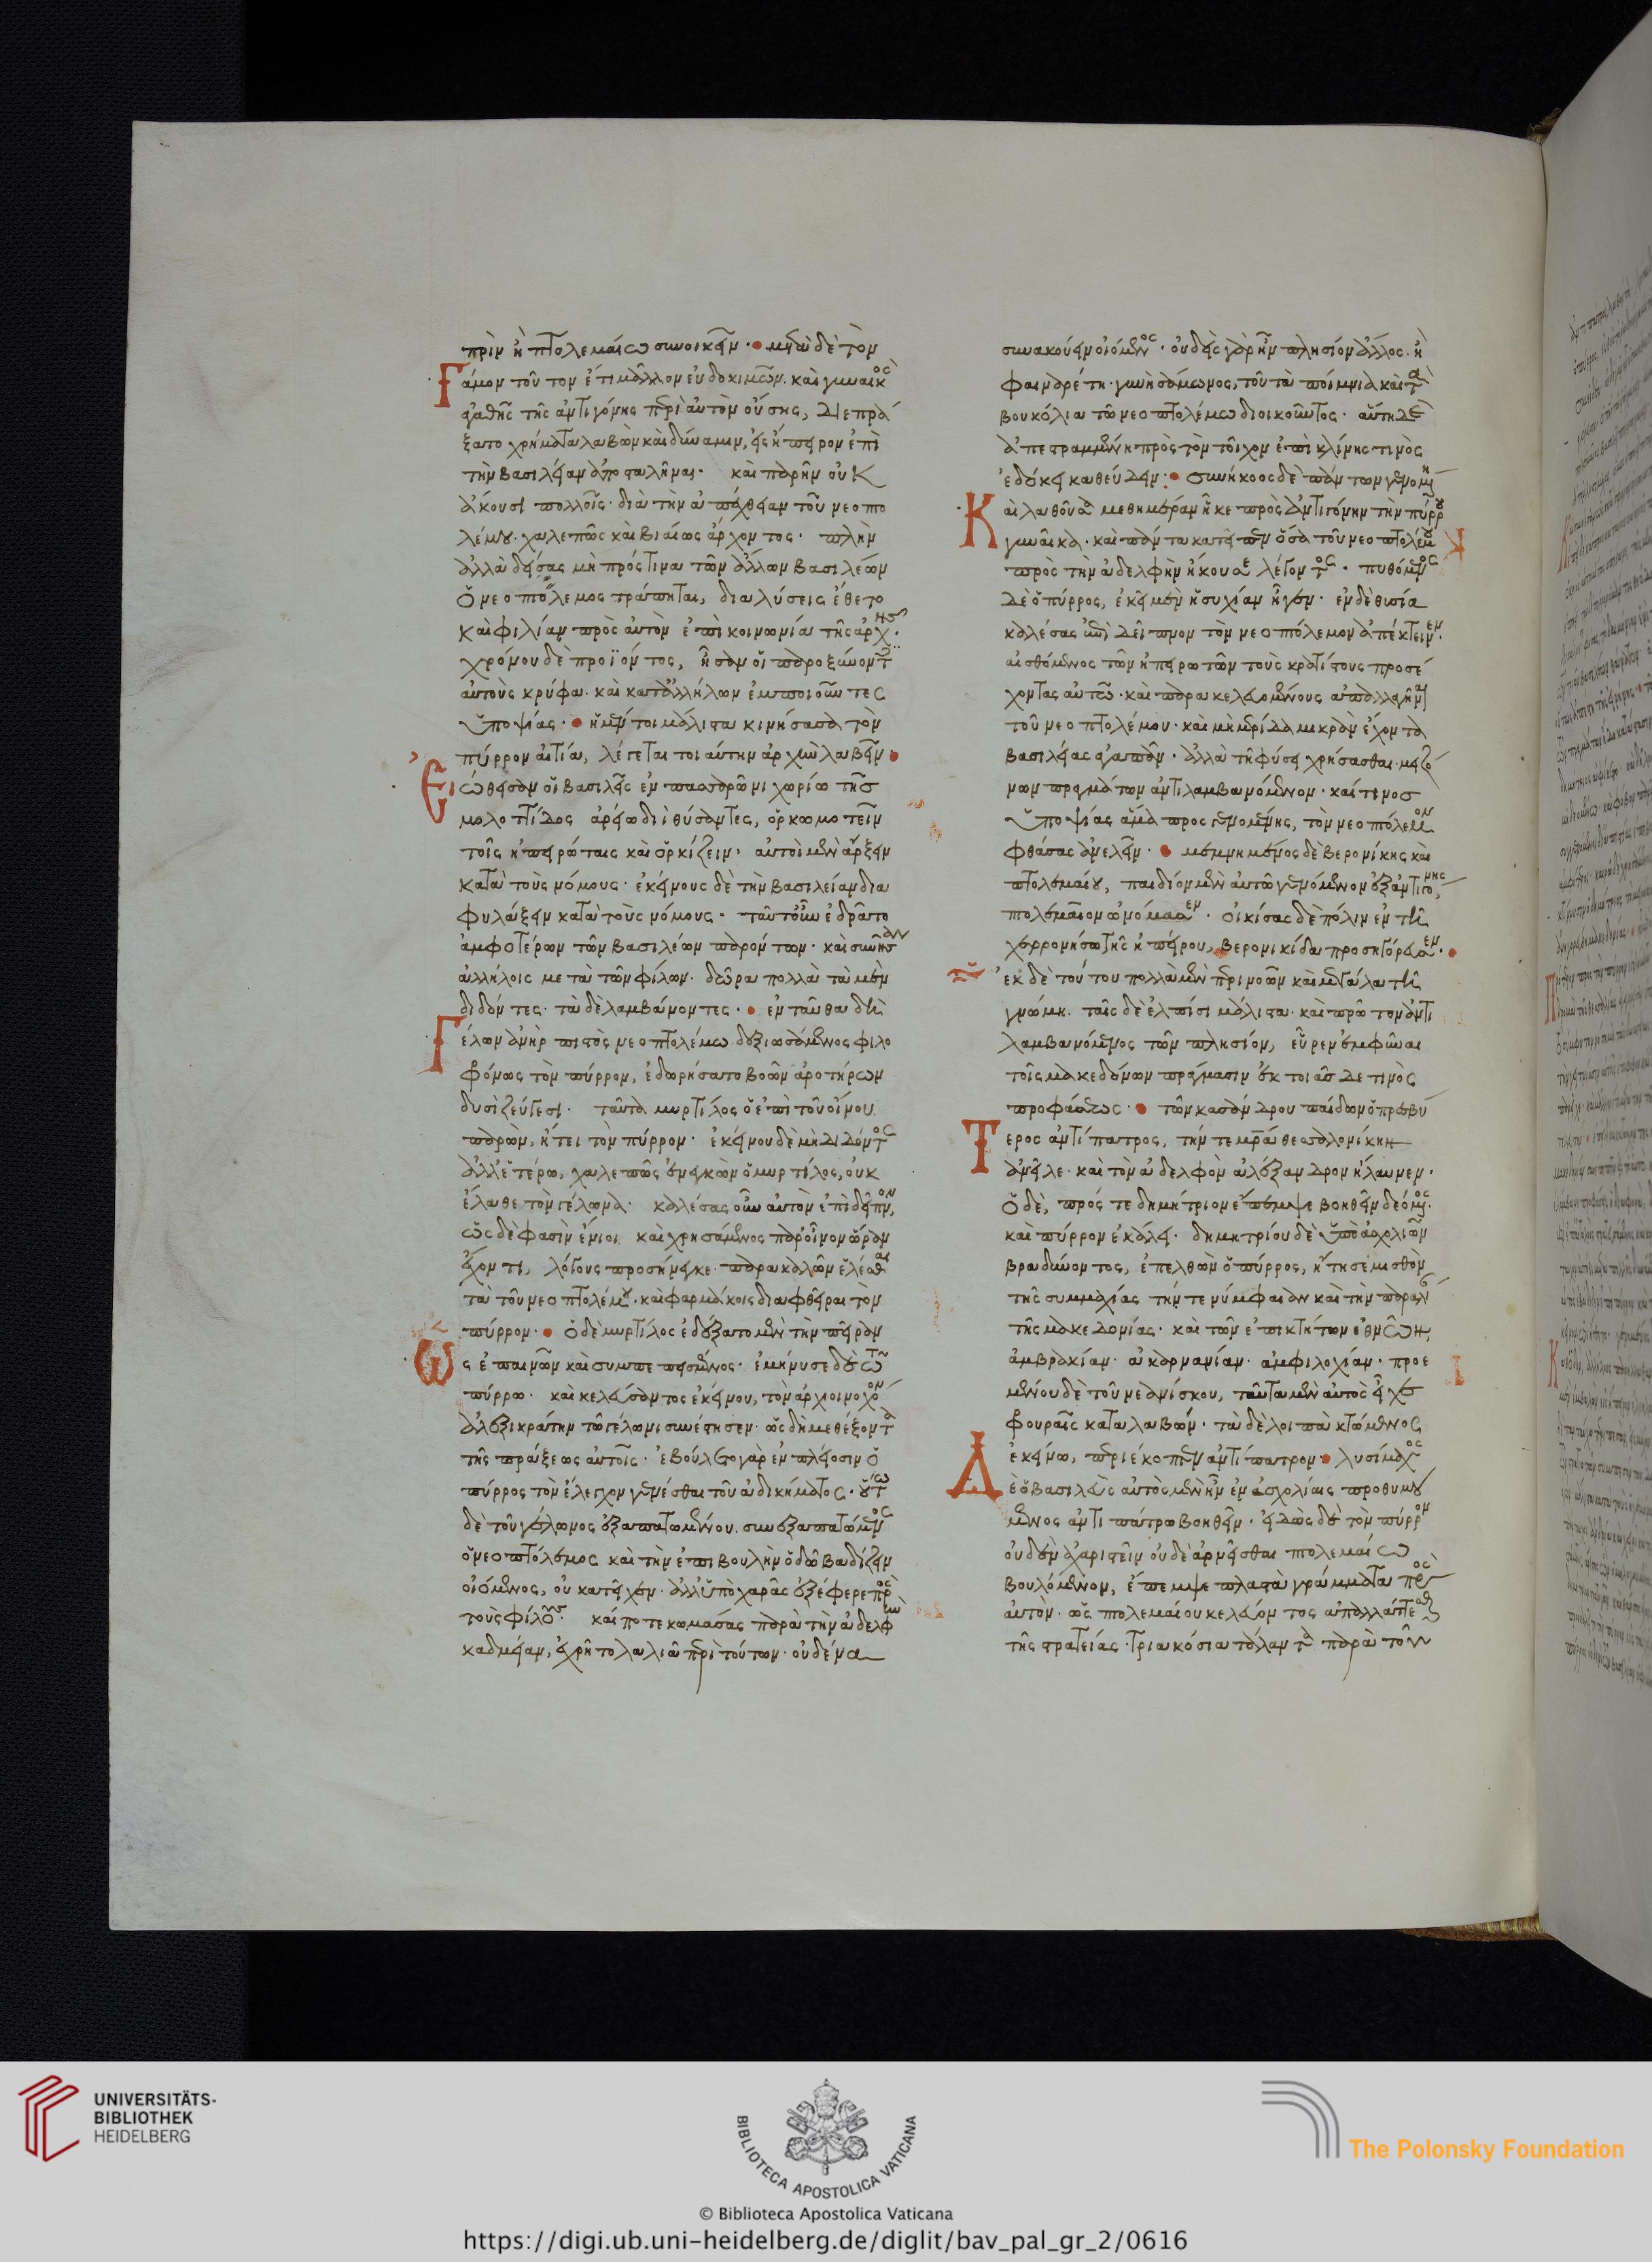 πρὶν ἢ πτολεμαίω συνοικεῖν· μετὰ δὲ τὸν
Γάμον τοῦτον ἔτι μᾶλλον εὐδοκιμῶν. καὶ γυναικὸς
ἀγαθῆς τῆς ἀντιγόνης περὶ αὐτὸν οὔσης, διεπρά
ξατο χρήματα λαβὼν καὶ δύναμιν, εἰς ἤπειρον ἐπὶ
τὴν βασιλείαν ἀποσταλῆναι· καὶ παρῆν οὐκ
ἄκουσι πολλοῖς· διὰ τὴν ἀπέχθειαν τοῦ νεοπτο
λέμου. χαλεπῶς καὶ βιαίως ἄρχοντος· πλὴν
ἀλλὰ δείσας μὴ πρός τινα τῶν ἄλλων βασιλέων
ὁ νεοπτόλεμος τράπηται, διαλύσεις ἔθετο
καὶ φιλίαν πρὸς αὐτὸν ἐπὶ κοινωνία τῆς ἀρχῆς·
χρόνου δὲ προϊόντος, ἦσαν οἱ παροξύνοντες
αὐτοὺς κρύφα. καὶ κατ' ἀλλήλων ἐμποιοῦντες
ὑποψίας· ἡ μέντοι μάλιστα κινήσασα τὸν
πύρρον αἰτία, λέγεται τοιαύτην ἀρχὴν λαβεῖν
Εἰώθεισαν οἱ βασιλεῖς ἐν πασσαρῶνι χωρίω τῆς
μολοττίδος ἀρείω διὶ θύσαντες, ὁρκωμοτεῖν
τοῖς ἠπειρώταις καὶ ὁρκίζειν· αὐτοὶ μὲν ἄρξειν
κατὰ τοὺς νόμους· ἐκείνους δὲ τὴν βασιλείαν δια
φυλάξειν κατὰ τοὺς νόμους· ταῦτ' οὖν ἐδρᾶτο
ἀμφοτέρων τῶν βασιλέων παρόντων· καὶ συνῆσαν
ἀλλήλοις μετὰ τῶν φίλων. δῶρα πολλὰ τὰ μὲν
διδόντες. τὰ δὲ λαμβάνοντες· ἐνταῦθα δὴ
Γέλων ἀνὴρ πιστὸς νεοπτολέμω δεξιωσάμενος φιλο
φρόνως τὸν πύρρον, ἐδωρήσατο βοῶν ἀροτήρων
δυσὶ ζεύγεσι· ταῦτα μυρτίλος ὁ ἐπὶ τοῦ οἴνου
παρὼν, ἤτει τὸν πύρρον· ἐκείνου δὲ μὴ διδόντος
ἀλλ' ἑτέρω, χαλεπῶς ἐνεγκὼν ὁ μυρτίλος, οὐκ
ἔλαθε τὸν γέλωνα· καλέσας οὖν αὐτὸν ἐπὶ δεῖπνον,
ὡς δέ φασιν ἔνιοι καὶ χρησάμενος πάροινον ὥραν
ἔχοντι, λόγους προσήνεγκε παρακαλῶν ἑλέσθαι
τὰ τοῦ νεοπτολέμου. καὶ φαρμάκοις διαφθεῖραι τὸν
πύρρον· ὁ δὲ μυρτίλος ἐδέξατο μὲν τὴν πεῖραν
Ὡς ἐπαινῶν καὶ συμπεπεισμένος· ἐμήνυσε δὲ τῶ
πύρρω· καὶ κελεύσαντος ἐκείνου, τὸν ἀρχιοινοχόον
ἀλεξικράτην τῶ γέλωνι συνέστησεν· ὡς δὴ μεθέξοντα
τῆς πράξεως αὐτοῖς· ἐβούλετο γὰρ ἐν πλείοσιν ὁ
πύρρος τὸν ἔλεγχον γενέσθαι τοῦ ἀδικήματος· οὕτω
δὲ τοῦ γέλωνος ἐξαπατωμένου. συνεξαπατώμενος
ὁ νεοπτόλεμος καὶ τὴν ἐπιβουλὴν ὁδῶ βαδίζειν
οἰόμενος, οὐ κατεῖχεν· ἀλλ' ὑπὸ χαρᾶς ἐξέφερε πρὸς
τοὺς φίλους· καί ποτε κωμάσας παρὰ τὴν ἀδελφὴν
καδμείαν, ἐχρῆτο λαλιᾶ περὶ τούτων· οὐδένα
συνακούειν οἰόμενος· οὐδεὶς γὰρ ἦν πλησίον ἄλλος. ἢ
φαιναρέτη· γυνὴ σάμωνος, τοῦ τὰ ποίμνια καὶ τὰ
βουκόλια τῶ νεοπτολέμω διοικοῦντος· αὕτη δὲ
ἀπεστραμμένη πρὸς τὸν τοῖχον ἐπὶ κλίνης τινὸς
ἐδόκει καθεύδειν· συνήκοος δὲ πάντων γενομένη
Καὶ λαθοῦσα μεθ' ἡμέραν ἧκε πρὸς ἀντιγόνην τὴν πύρρου
γυναῖκα. καὶ πάντα κατεῖπεν ὅσα τοῦ νεοπτολέμου
πρὸς τὴν ἀδελφὴν ἤκουσε λέγοντος· πυθόμενος
δὲ ὁ πύρρος, ἐκεῖ μὲν ἡσυχίαν ἦγεν· ἐν δὲ θυσία
καλέσας ἐπὶ δεῖπνον τὸν νεοπτόλεμον ἀπέκτεινεν·
αἰσθόμενος τῶν ἠπειρωτῶν τοὺς κρατίστους προσέ
χοντας αὐτῶ. καὶ παρακελευομένους ἀπαλλαγῆναι
τοῦ νεοπτολέμου· καὶ μὴ μερίδα μικρὰν ἔχοντα
βασιλείας ἀγαπᾶν· ἀλλὰ τῆ φύσει χρήσασθαι. μειζό
νων πραγμάτων ἀντιλαμβανόμενον· καί τινος
ὑποψίας ἅμα προσγενομένης, τὸν νεοπτόλεμον
φθάσας ἀνελεῖν· μεμνημένος δὲ βερονίκης καὶ
πτολεμαίου, παιδίον μὲν αὐτῶ γενόμενον ἐξ ἀντιγόνης,
πτολεμαῖον ὠνόμασεν· οἰκίσας δὲ πόλιν ἐν τῆ
χερρονήσω τῆς ἠπείρου, βερονικίδα προσηγόρευσεν·
ἐκ δὲ τούτου πολλὰ μὲν περινοῶν καὶ μεγάλα τῆ
γνώμη. ταῖς δὲ ἐλπίσι μάλιστα· καὶ πρῶτον ἀντι
λαμβανόμενος τῶν πλησίον, εὗρεν ἐμφῦναι
τοῖς μακεδόνων πράγμασιν ἐκ τοιᾶσδέ τινος
προφάσεως· τῶν κασάνδρου παίδων ὁ πρεσβύ
Τερος ἀντίπατρος, τήν τε μητέρα θεσσαλονίκην
ἀνεῖλε. καὶ τὸν ἀδελφὸν ἀλέξανδρον ἤλαυνεν·
ὁ δὲ, πρός τε δημήτριον ἔπεμψε βοηθεῖν δεόμενος·
καὶ πύρρον ἐκάλει· δημητρίου δὲ ὑπὸ ἀσχολιῶν
βραδύνοντος, ἐπελθὼν ὁ πύρρος, ἤτησε μισθὸν
τῆς συμμαχίας τήν τε νύμφαιαν καὶ τὴν παραλίαν
τῆς μακεδονίας· καὶ τῶν ἐπικτήτων ἐθνῶν,
ἀμβρακίαν· ἀκαρνανίαν· ἀμφιλοχίαν· προε
μένου δὲ τοῦ νεανίσκου, ταῦτα μὲν αὐτὸς εἶχε
φρουραῖς καταλαβών· τὰ δὲ λοιπὰ κτώμενος
ἐκείνω, περιέκοπτεν ἀντίπατρον· λυσίμαχος
Δὲ ὁ βασιλεὺς αὐτὸς μὲν ἦν ἐν ἀσχολίαις προθυμού
μενος ἀντιπάτρω βοηθεῖν· εἰδὼς δὲ τὸν πύρρον
οὐδὲν ἀχαριστεῖν οὐδὲ ἀρνεῖσθαι πτολεμαίω
βουλόμενον, ἔπεμψε πλαστὰ γράμματα πρὸς
αὐτὸν· ὡς πτολεμαίου κελεύοντος ἀπαλλάττεσθαι
τῆς στρατείας· τριακόσια τάλαντα παρὰ τοῦ
UNIVERSITÄTS-
BIBLIOTHEK
HEIDELBERG
BIBLIOTECA APOSTOLICA VATICANA
The Polonsky Foundation
© Biblioteca Apostolica Vaticana
https://digi.ub.uni-heidelberg.de/diglit/bav_pal_gr_2/0616